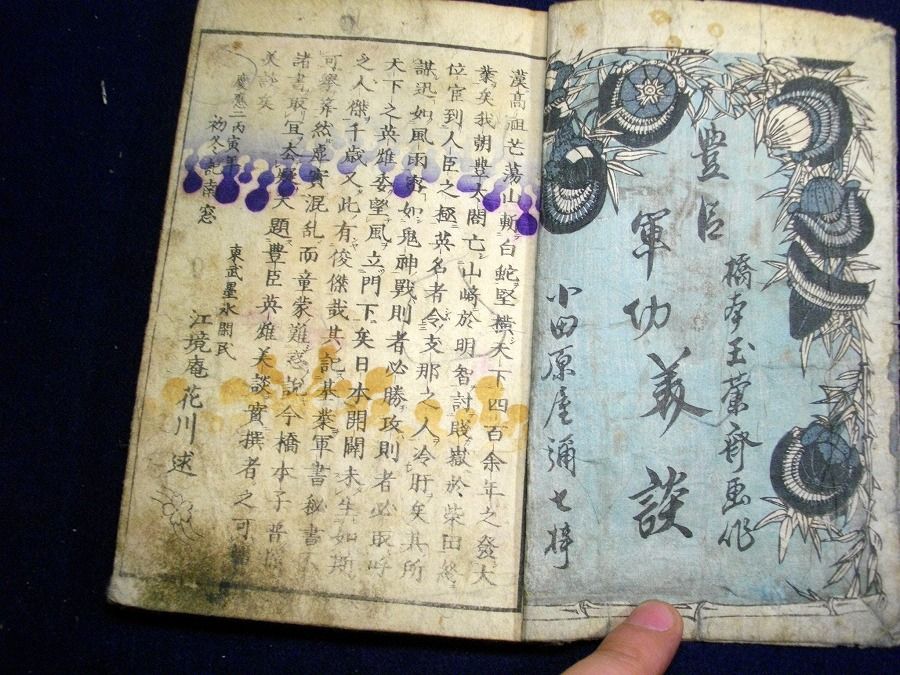 橋本玉蘭齋画作
豊臣
軍功美談
小田原屋彌七梓
漢高祖芒蕩山斬白蛇堅横天下四百余年之發大
業矣我朝豊太閤亡山崎於明智討賤嶽於柴田終
位宦到人臣之極英名者令支那之人冷肝矣其所
謀迅如風雨霹如鬼神戰則者必勝攻則者必取呼
天下之英雄委望風立門下矣日本開闢未生如斯
之人傑千歳又此有俊傑哉其記基業軍書秘書不
可擧筭然虚實混乱而童蒙難惑説今橋本子普
諸書取且去疑大題豊臣英雄美談實撰者之可
美談矣
慶應二丙寅年
初冬記南窓
東武墨水閑民
江境庵花川述